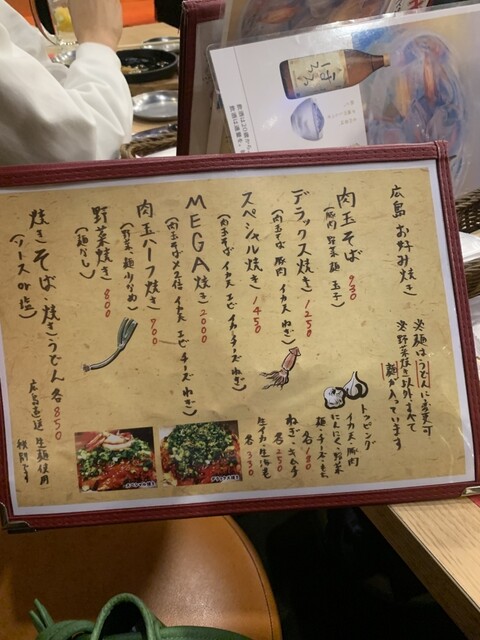 広島 お好み焼き
※麺はうどんに変更可
※野菜焼き以外すべて
麺が入っています
肉玉そば 930
(豚肉 野菜 麺 玉子)
デラックス焼き 1250
(肉玉そば 豚肉 イカ天 ねぎ)
スペシャル焼き 1450
(肉玉そば イカ天 エビ イカ チーズ ねぎ)
MEGA焼き 2000
(肉玉そばメガ倍 イカ天 エビ チーズ ねぎ)
肉玉ハーフ焼き 700
(野菜・麺少なめ)
野菜焼き 800
(麺なし)
焼きそば・焼きうどん 各850
(ソース or 塩)
トッピング
イカ天・豚肉
にんにく・野菜
麺・チーズ・もち
各180
ねぎ・キムチ
各250
生イカ・生海老
各330
広島直送 生麺使用